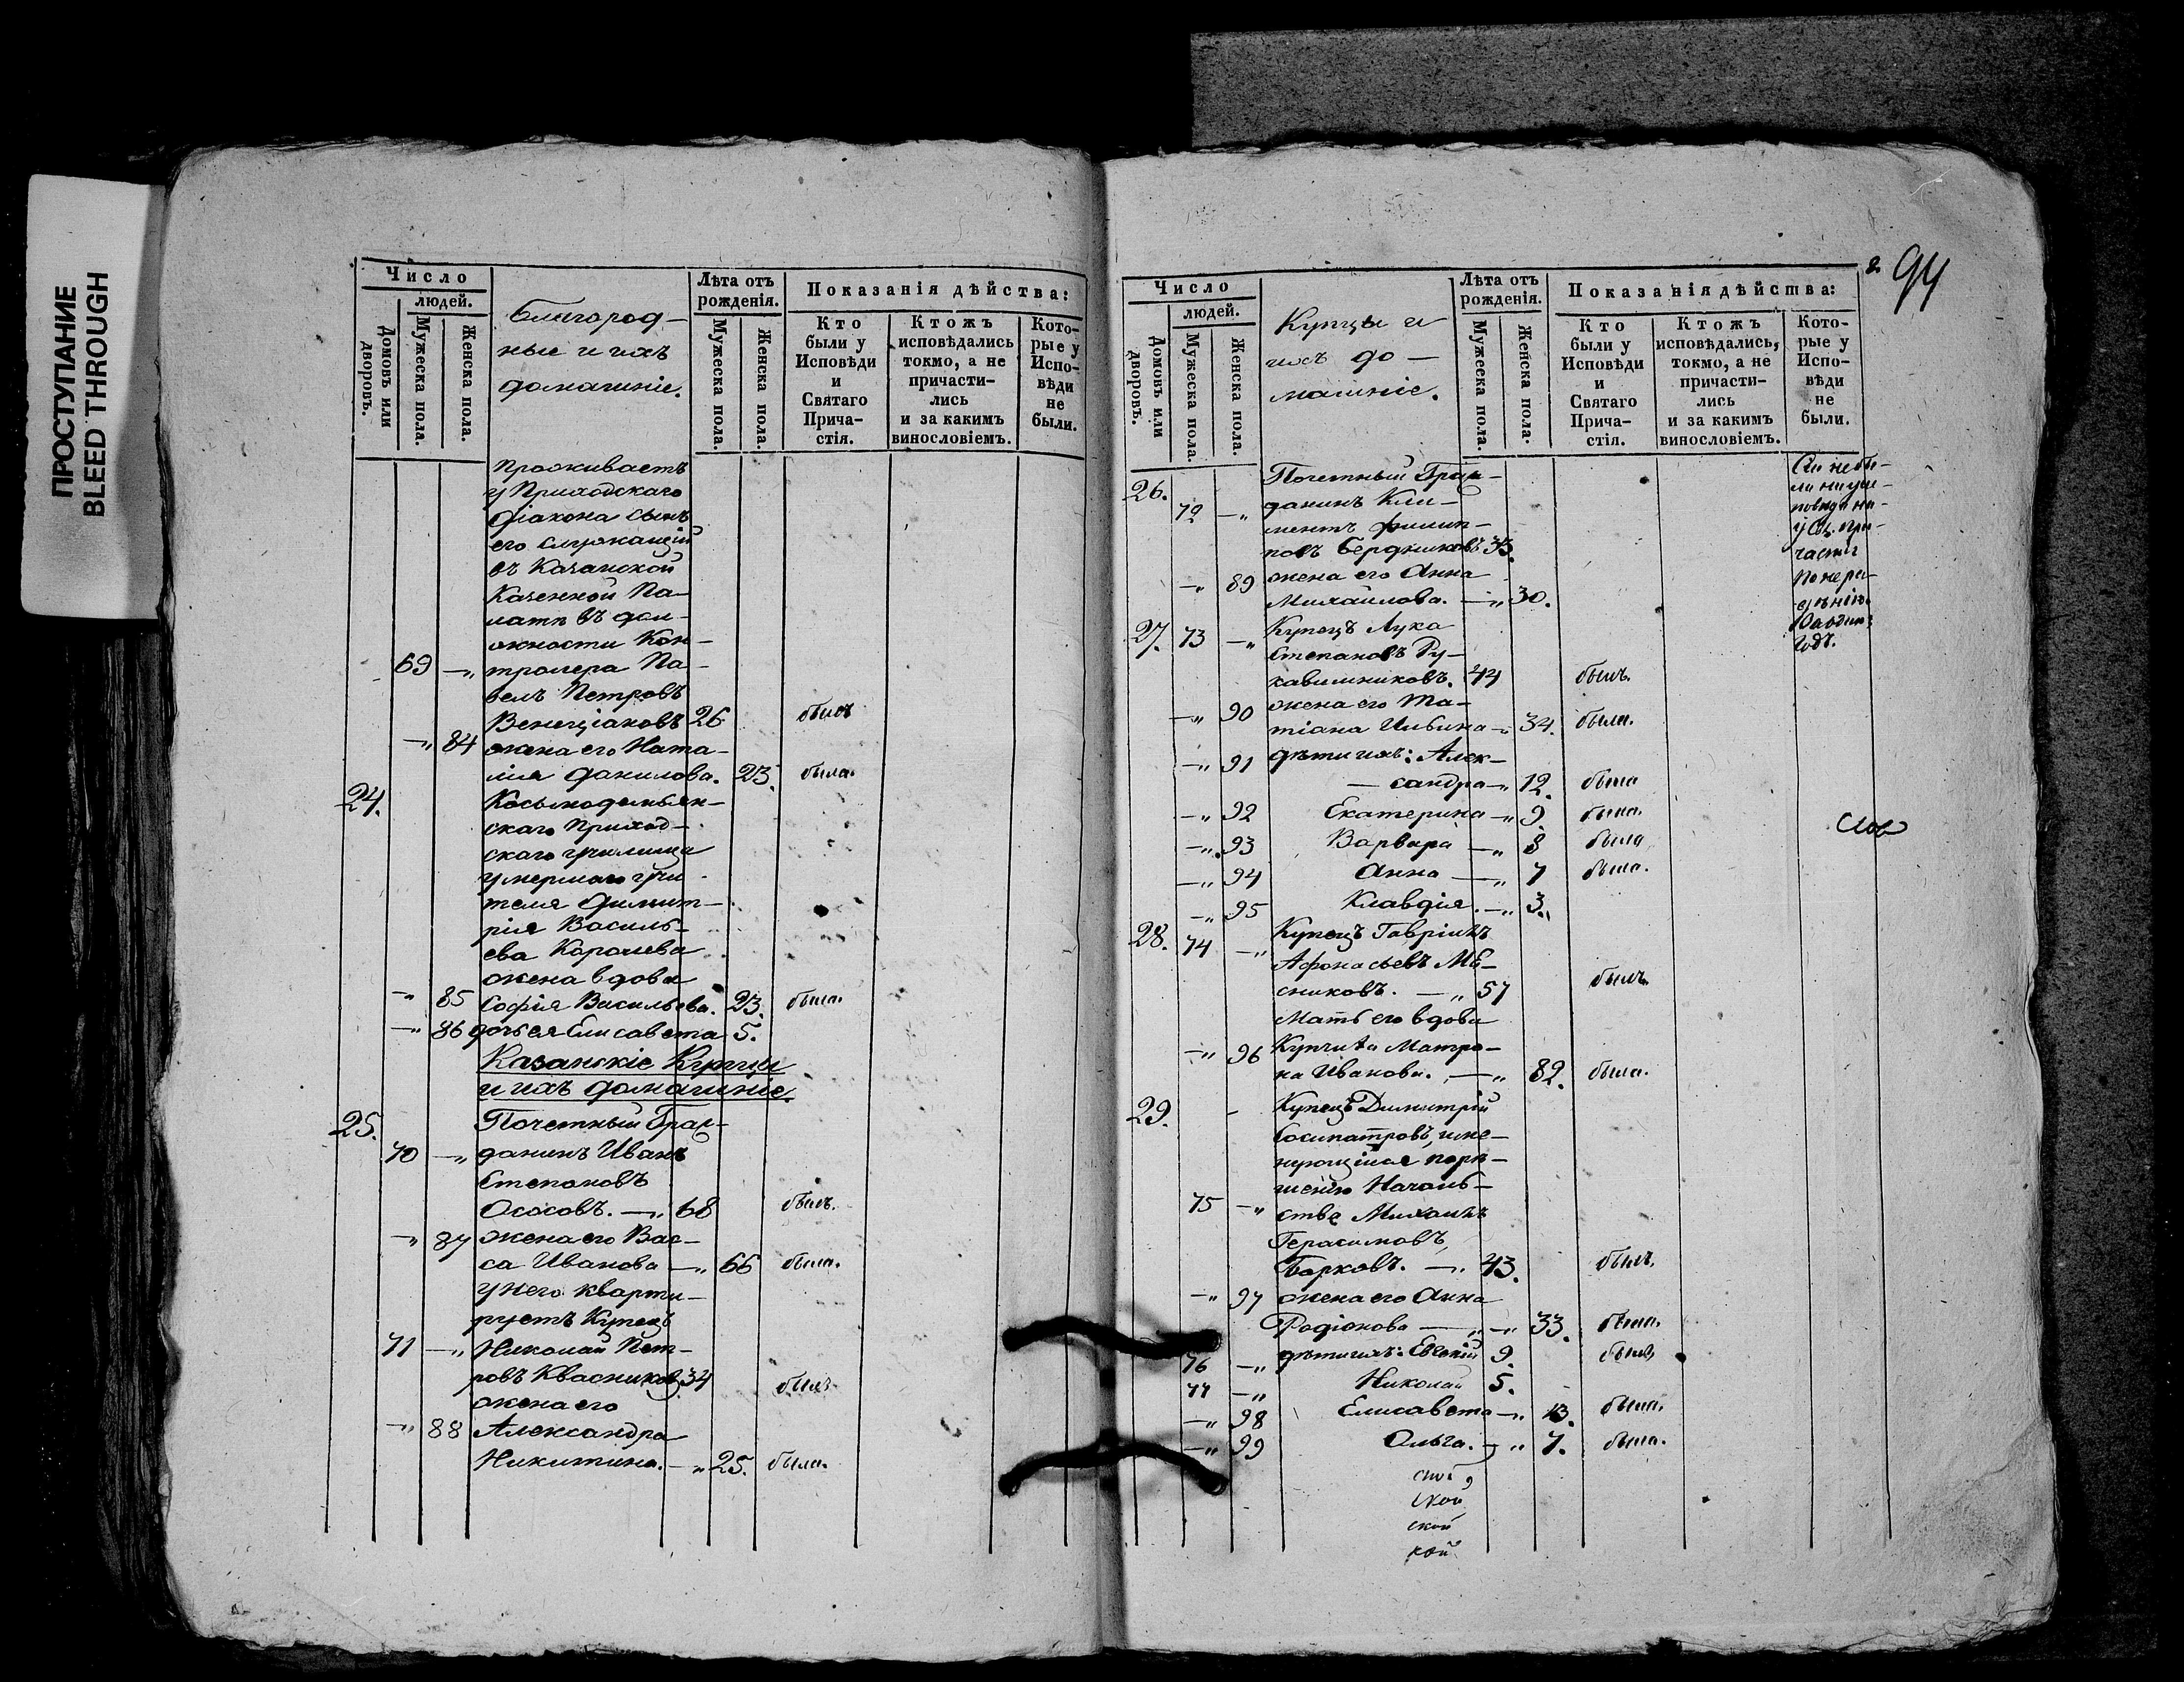 ПРОСТУПАНИЕ
BLEED THROUGH
Число
людей.
Домовъ или дворовъ.
Мужеска пола.
Женска пола.
Благород-
ные и ихъ
домашніе.
Лѣта отъ
рожденія.
Мужеска пола.
Женска пола.
Показанія дѣйства:
Кто
были у
Исповѣди
и
Святаго
Прича-
стія.
Ктожъ
исповѣдались
токмо, а не
причасти-
лись
и за какимъ
винословіемъ.
Кото-
рые у
Испо-
вѣди
не
были.
Проживаетъ
у Приходскаго
діакона сынъ
его служащій
въ Казанской
Казенной Па-
латѣ въ дол-
жности Кон-
69 —„ тролера Па-
велъ Петровъ
Венеціановъ 26 былъ
—„ 84 жена его Ната-
лія Данилова. 23. была.
24. Косьмодемьян-
скаго Приход-
скаго училища
умершаго учи-
теля Димит-
рія Василь-
ева
жена вдова
—„ 85 Софія Васильева. 23. была.
—„ 86 дочь ея Елисавета 5.
Казанскіе Купцы
и ихъ домашніе.
25. Почетный Граж-
70 —„ данинъ Иванъ
Степановъ
Ососовъ. —„ 68 былъ.
—„ 87 жена его Вас-
са Иванова —„ 66 была.
у него кварти-
руетъ Купецъ
71 —„ Николай Пет-
ровъ Квасников 34 былъ
жена его
—„ 88 Александра
Никитина. —„ 25. была.
94
Число
людей.
Домовъ или дворовъ.
Мужеска пола.
Женска пола.
Купцы и
ихъ до-
машніе.
Лѣта отъ
рожденія.
Мужеска пола.
Женска пола.
Показанія дѣйства:
Кто
были у
Исповѣди
и
Святаго
Прича-
стія.
Ктожъ
исповѣдались,
токмо, а не
причасти-
лись
и за какимъ
винословіемъ.
Кото-
рые у
Испо-
вѣди
не
были.
26. Почетный Граж-
72 —„ данинъ Кли-
ментъ Филип-
повъ Бердниковъ 35.
—„ 89 жена его Анна
Михайлова. —„ 30.
Сіи не бы-
ли ни у ис-
повѣди ни
у Св. При-
частія
по нера-
дѣнію
годъ.
27. 73 —„ Купецъ Лука
Степановъ Ру-
кавишниковъ. 44 былъ.
—„ 90 жена его Та-
тіана Ильина —„ 34. была.
—„ 91 дѣти ихъ: Алек-
— сандра —„ 12. была
—„ 92 Екатерина —„ 9. была.
—„ 93 Варвара —„ 8 была
—„ 94 Анна —„ 7 была.
—„ 95 Клавдія. —„ 3.
28. 74 —„ Купецъ Гавріилъ
Афонасьевъ Мѣ-
сниковъ. —„ 57 былъ.
Мать его вдова
—„ 96 Купчиха Матро-
на Иванова. —„ 82. была.
29. Купецъ Димитрій
Сосипатровъ, име-
нующійся по рѣ-
шенію Началь-
75 —„ ства Михаилъ
Герасимовъ
Борковъ. —„ 43. былъ.
—„ 97 жена его Анна
Родіонова —„ —„ 33. была.
76 —„ дѣти ихъ: Евгеній 9. былъ,
77 —„ Николай 5.
—„ 98 Елисавета —„ 13. была.
—„ 99 Ольга. —„ 7. была.
ской
ской
кой